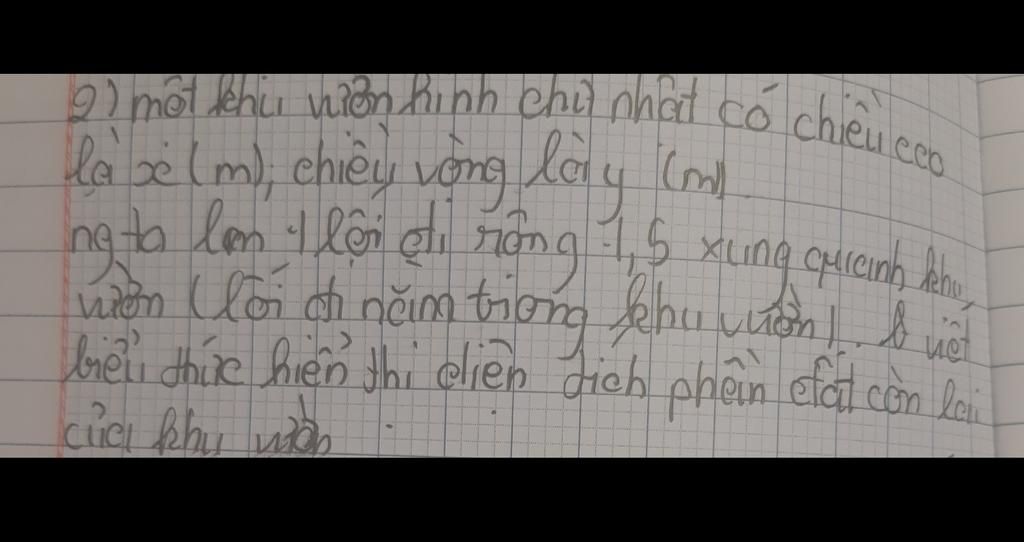 2) một khu vườn hình chữ nhật có chiều cao
là x (m), chiều rộng là y (m)
ng ta làm 1 lối đi rộng 1,5 xung quanh khu
vườn (lối đi nằm trong khu vườn). viết
biểu thức hiển thị diện tích phần đất còn lại
của khu vườn.